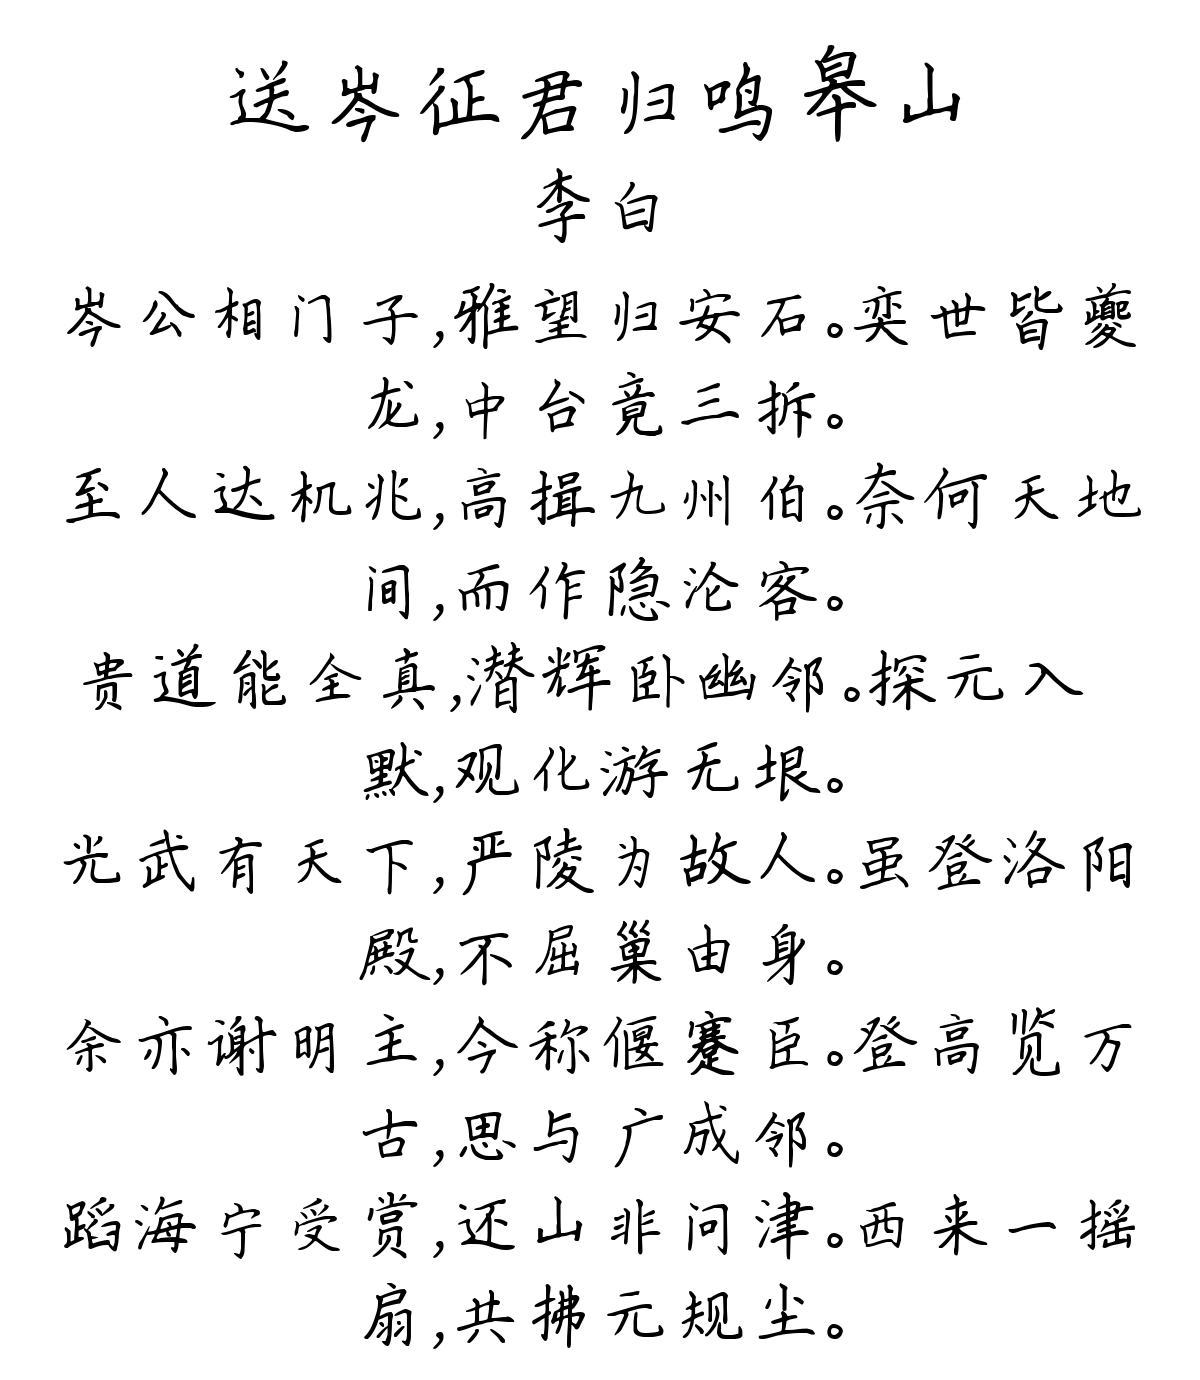 送岑征君归鸣皋山
李白
岑公相门子,雅望归安石。奕世皆夔
龙,中台竟三拆。
至人达机兆,高揖九州伯。奈何天地
间,而作隐沦客。
贵道能全真,潜辉卧幽邻。探元入
默,观化游无垠。
光武有天下,严陵为故人。虽登洛阳
殿,不屈巢由身。
余亦谢明主,今称偃蹇臣。登高览万
古,思与广成邻。
蹈海宁受赏,还山非问津。西来一摇
扇,共拂元规尘。